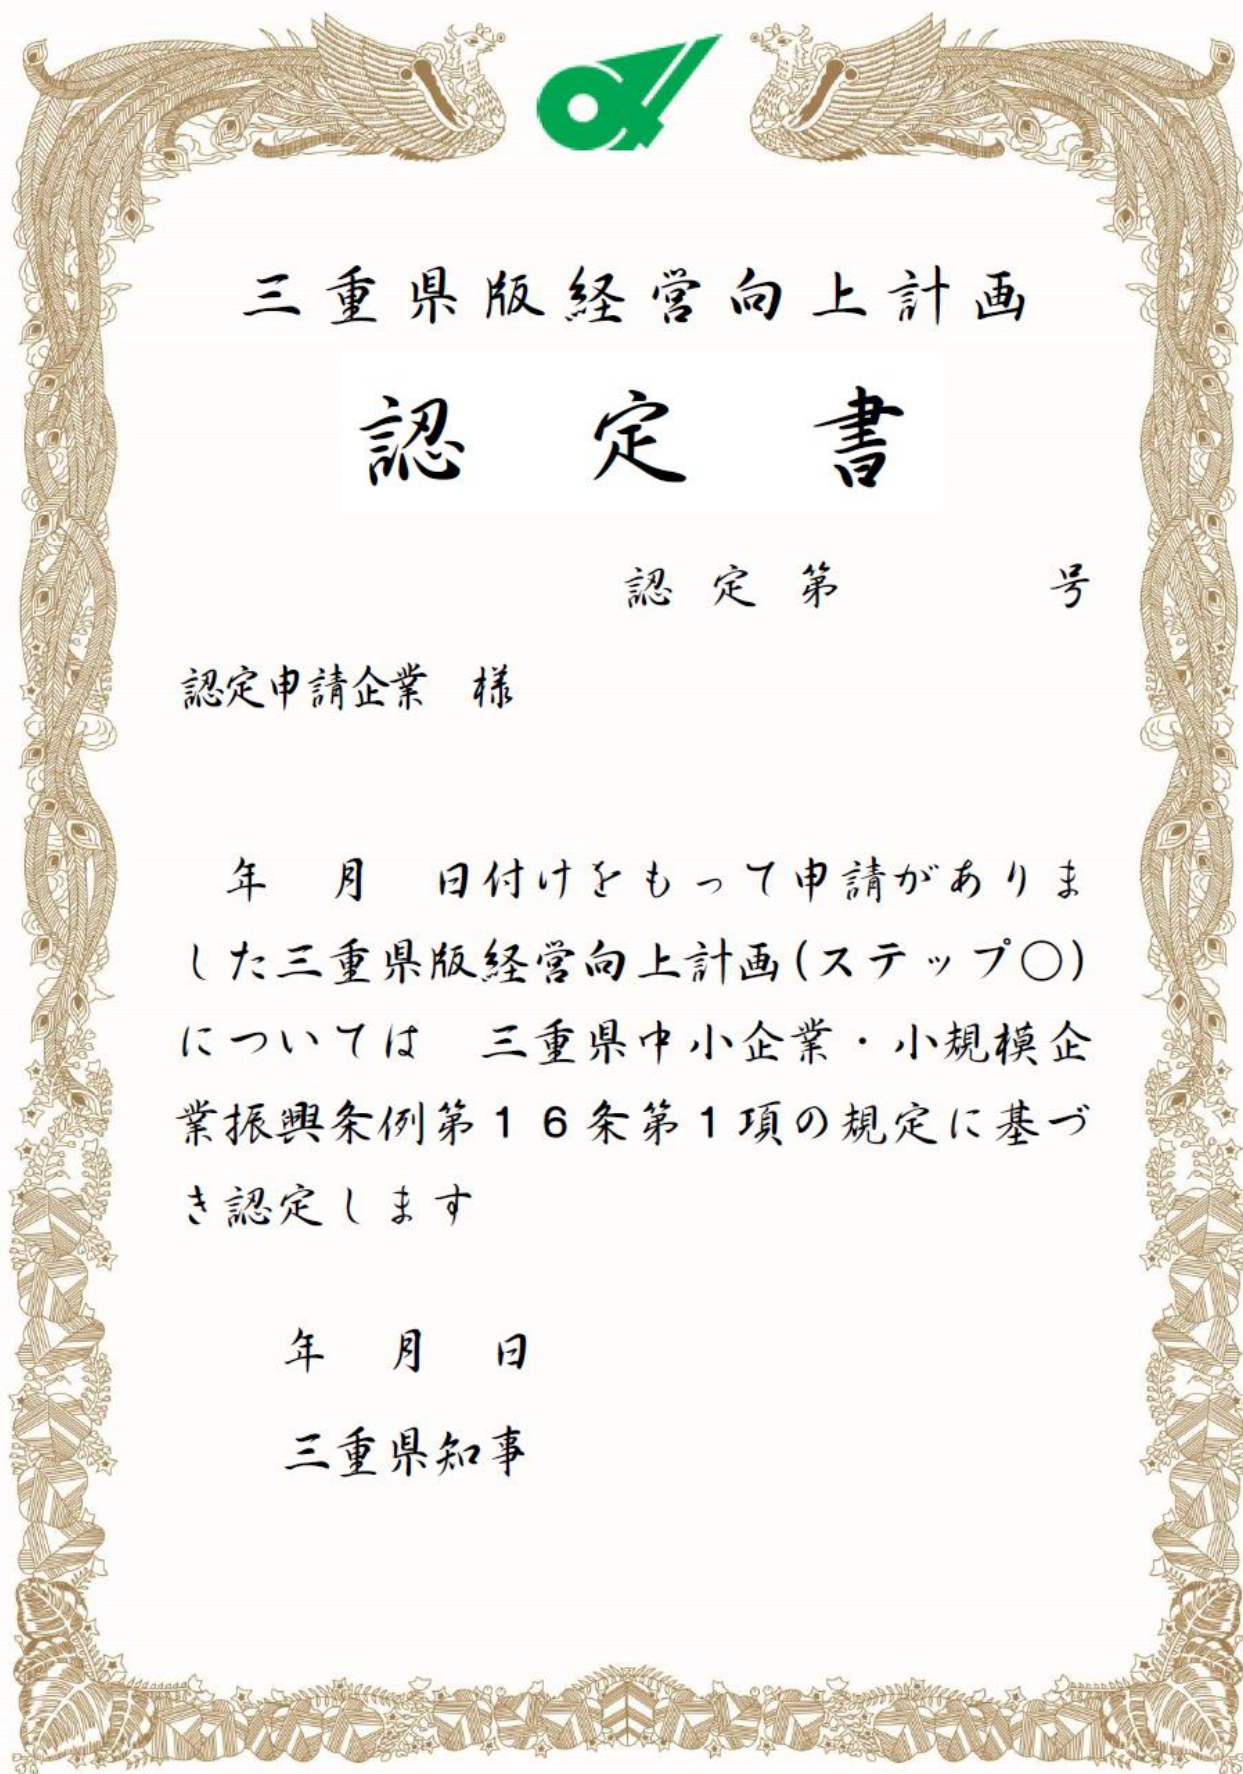 三重県版経営向上計画
認定書
認定第　　　号
認定申請企業　様
年　月　日付けをもって申請がありま
した三重県版経営向上計画(ステップ〇)
については　三重県中小企業・小規模企
業振興条例第１６条第１項の規定に基づ
き認定します
年　月　日
三重県知事